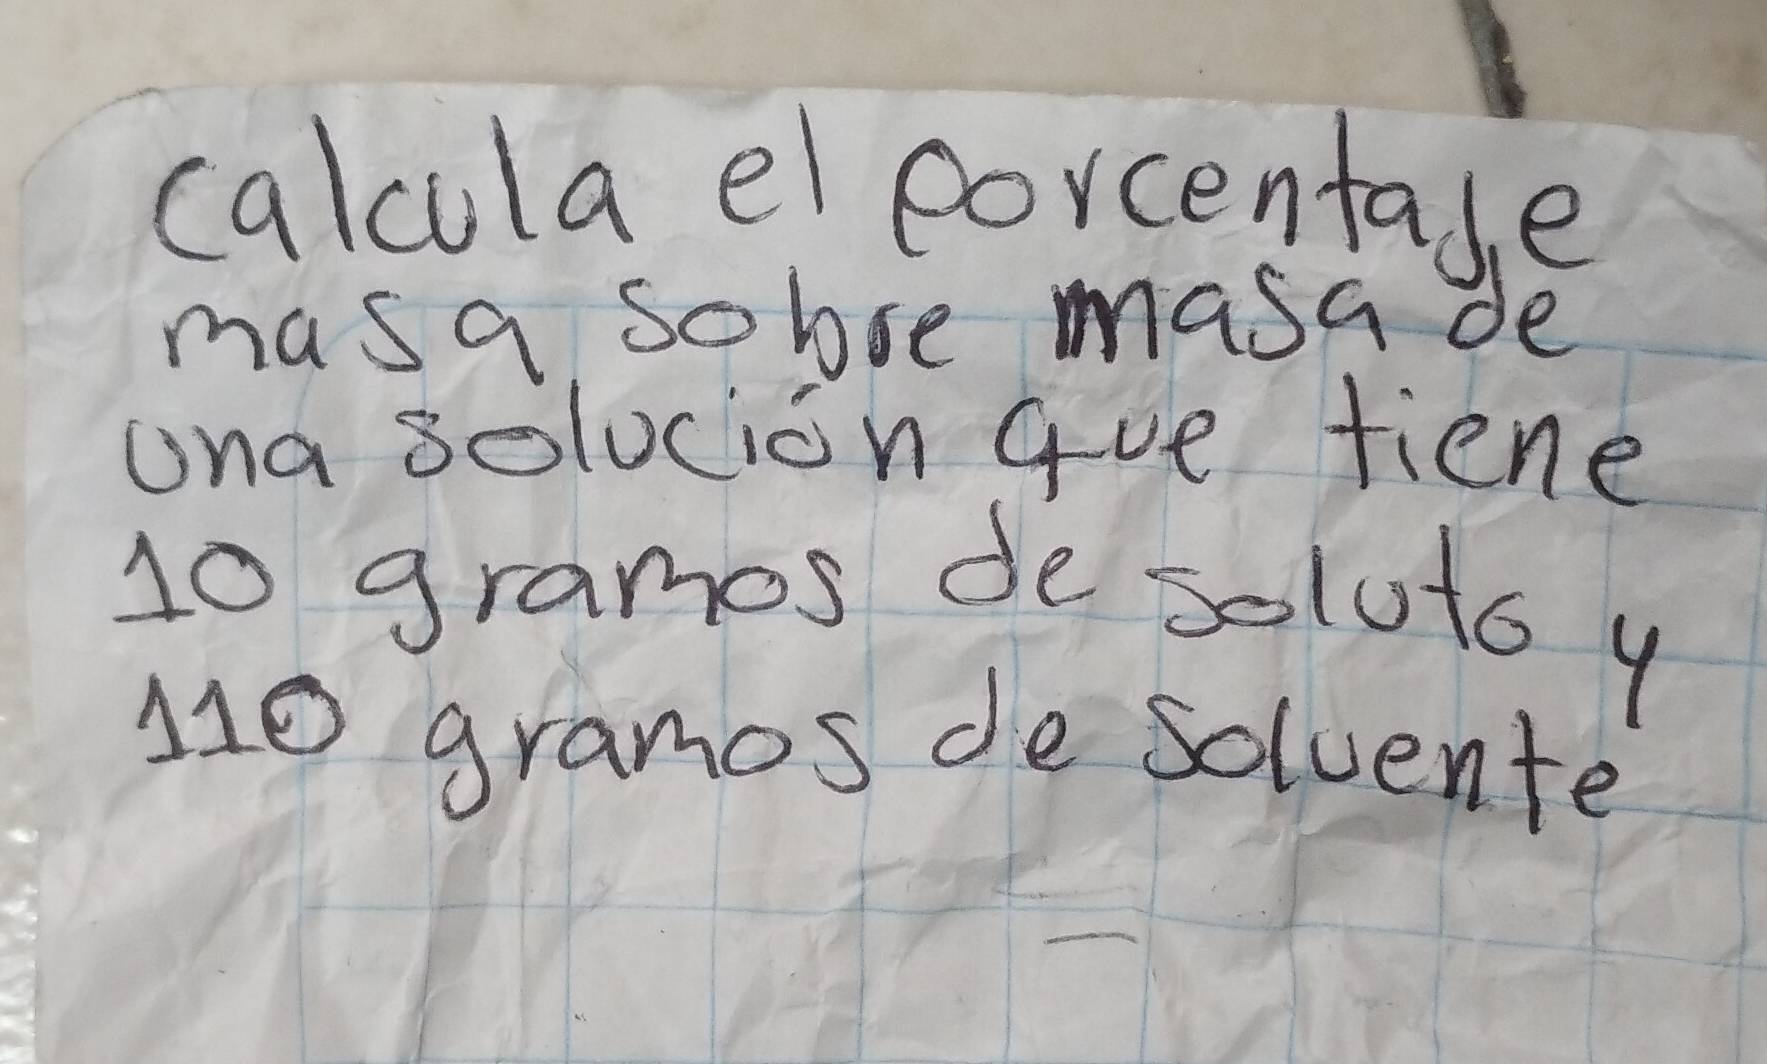 calcula el porcentaje
masa sobre masa de
una solución que tiene
10 gramos de soluto y
110 gramos de solvente